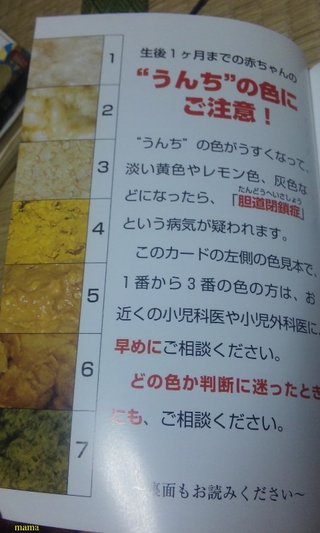 生後1ヶ月までの赤ちゃんの
“うんち”の色に
ご注意！
“うんち”の色がうすくなって、
淡い黄色やレモン色、灰色な
どになったら、「胆道閉鎖症
たんどうへいさしょう
という病気が疑われます。
このカードの左側の色見本で、
1番から3番の色の方は、お
近くの小児科医や小児外科医に、
早めにご相談ください。
どの色か判断に迷ったとき
にも、ご相談ください。
～裏面もお読みください～
1
2
3
4
5
6
7
mama